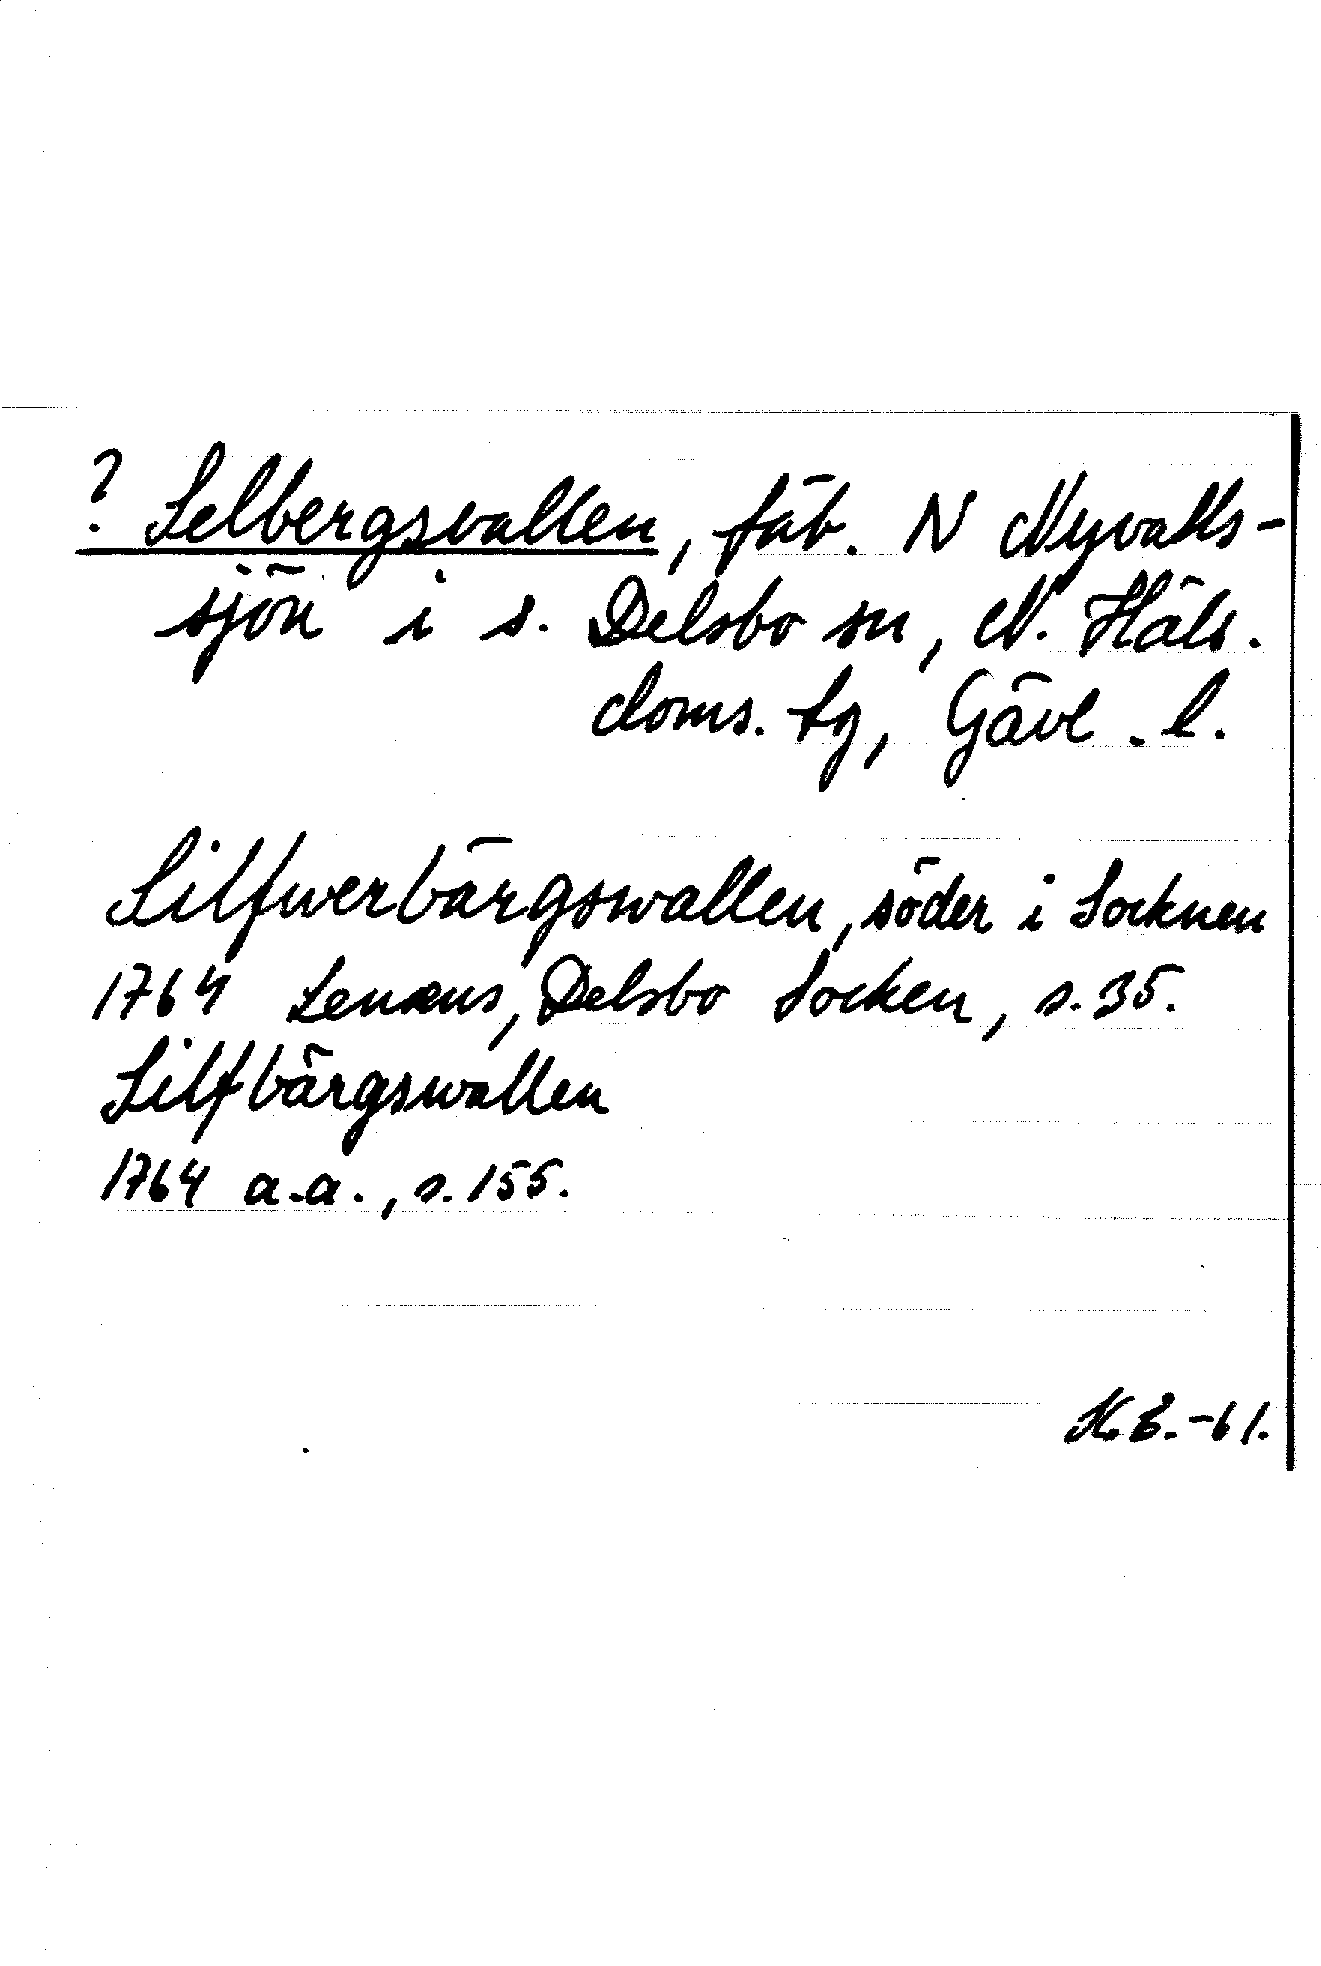 ? Selbergsvallen, fäb. N Nyvalls-
sjön i s. Delsbo sn, N. Häls.
doms. tg, Gävl. l.
Silfwerbärgswallen, söder i Socknen
1764 Lenæus, Delsbo Socken, s. 35.
Silfbärgswallen
1764 a.a., s. 155.
K.E. -61.